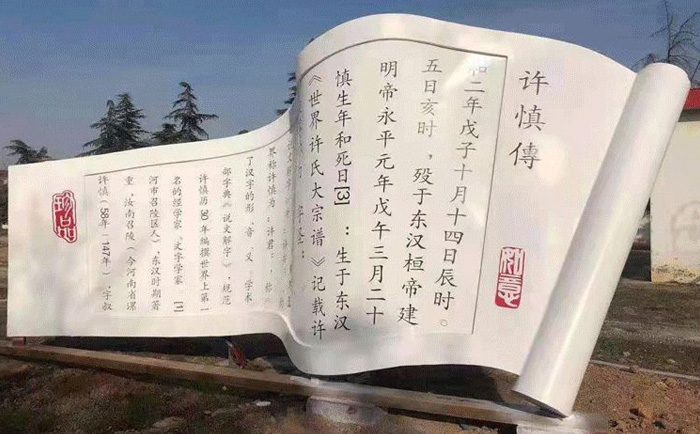 许慎傳
许慎（58年－147年），字叔
重，汝南召陵（今河南省漯
河市召陵区人），东汉时期著
名的经学家、文字学家 [1]
许慎历30年编撰世界上第一
部字典《说文解字》，规范
了汉字的形、音、义，学术
界称许慎为“许君”，称
《世界许氏大宗谱》记载许
慎生年和死日[3] ：生于东汉
明帝永平元年戊午三月二十
五日亥时，殁于东汉桓帝建
和二年戊子十月十四日辰时。
如意
珍品